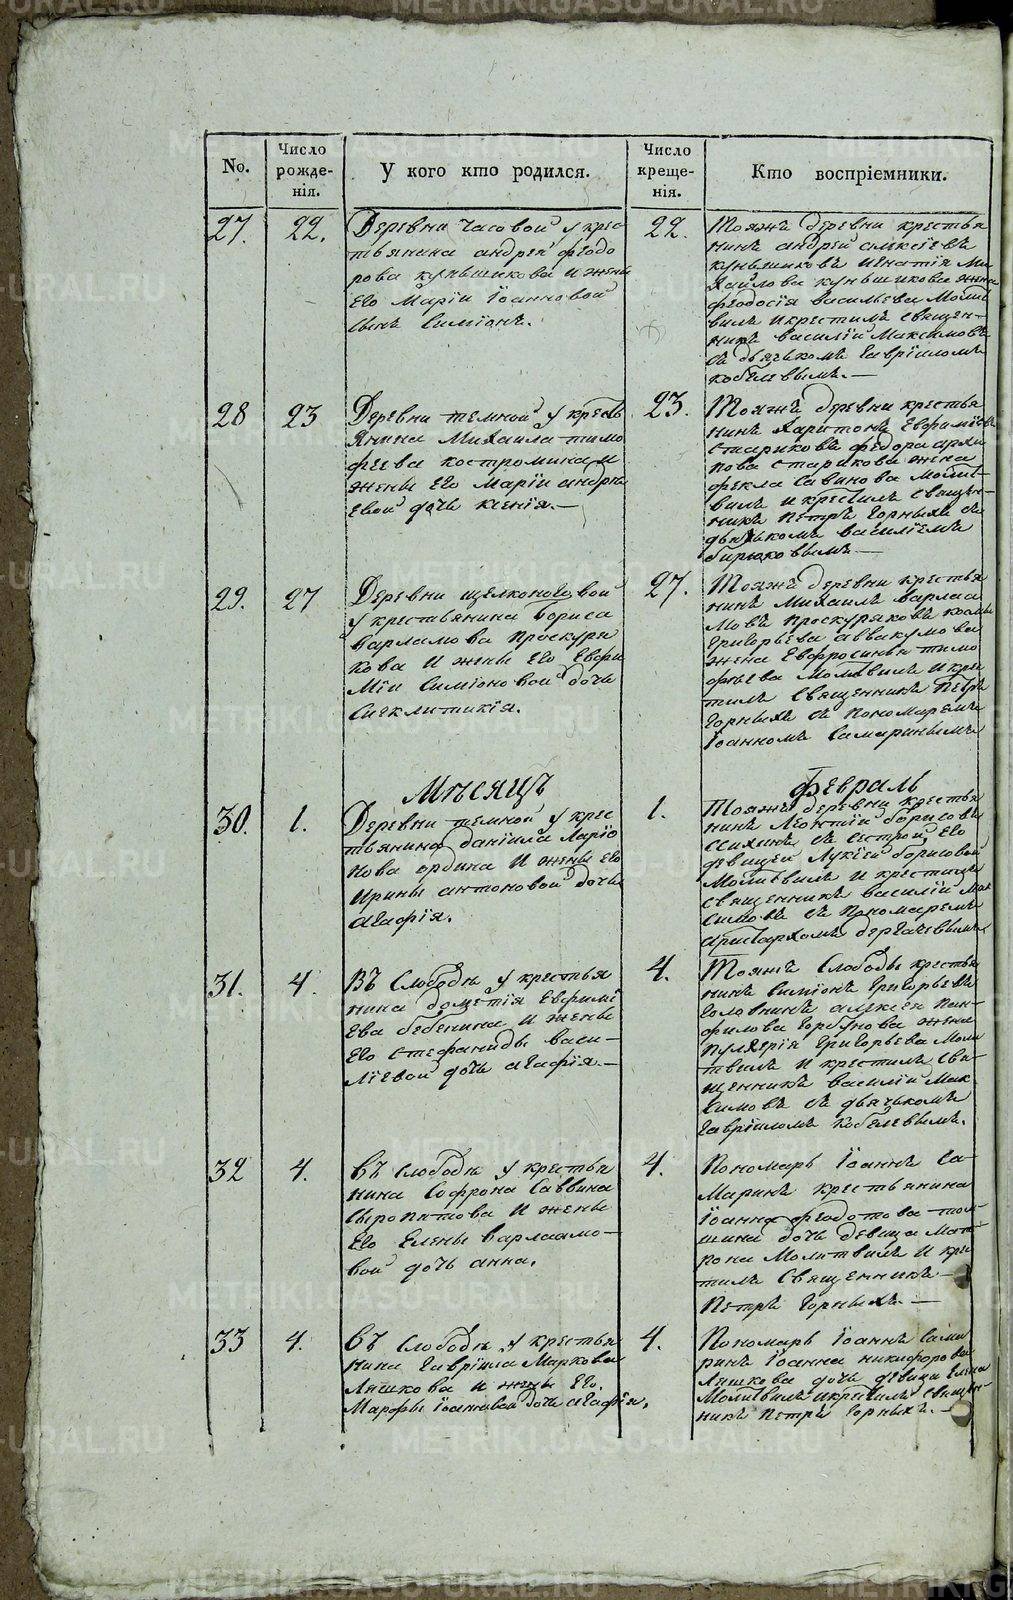 No.
Число рожде- нія.
У кого кто родился.
Число креще- нія.
Кто воспріемники.
27.
22.
Деревни Часовой у крес
тьянина андрей феодо
рова куньшикова и жены
Его Маріи Іоанновой
сынъ Симіонъ.
22.
Тояжъ деревни крестья
нинъ андрей алексіевъ
куньшиковъ игнатія Ми
хайлова куньшикова жена
феодосія васильева Молит
вилъ и крестилъ священ-
никъ василій Максимовъ
съ дьячькомъ гавріиломъ
кобелевымъ.—
28
23
Деревни темной у кресть
янина Михаила тимо
феева костромина и
жены Его Маріи андре
евой дочь ксенія.—
23.
Тояжъ деревни крестья
нинъ Харитонъ Евфиміевъ
Стариковъ федора архи
пова старикова жена
фекла Савинова Молит-
вилъ и крестилъ священ-
никъ петръ горныхъ съ
дьячькомъ василіемъ
бирюковымъ.—
29.
27
Деревни щелконоговой
у крестьянина бориса
варламова проскуря
кова и жены Его Евфи
Міи Симіоновой дочь
Сигклитикія.
27.
Тояжъ деревни крестья
нинъ Михаилъ варлаа
мовъ проскуряковъ косьмы
григорьева аввакумова
жена Евфросинья тимо
фъева молитвилъ и крес
тилъ священникъ петръ
горныхъ съ пономаремъ
Іоанномъ Самаринымъ
Мъсяцъ
Февраль
30.
1.
Деревни темной у крес
тьянина даніила Ларіо
нова ордина и жены Его
Ирины антоновой дочь
агафія.
1.
Тояжъ деревни крестья
нинъ Леонтій борисовъ
съ сестрой Его
девицей Лукіей борисовой
Молитвилъ и крестилъ
священникъ василій Мак
симовъ съ пономаремъ
аристархомъ дергачевымъ
31.
4.
Въ Слободъ у крестья
нина дометія Евфимі
ева бебенина и жены
Его Стефаниды васи-
ліевой дочь агафія.—
4.
Тояжъ Слободы крестья
нинъ Симіонъ григорьевъ
головнинъ алексея пан-
филова горбунова жена
пулхерія григорьева Моли
твилъ и крестилъ свя-
щенникъ василій Мак
симовъ съ дьячькомъ
гавріиломъ кобелевымъ.
32
4.
Въ слободъ у крестья
нина Софрона Саввина
сыропятова и жены
Его Елены варлаамо-
вой дочь анна.
4.
Пономарь Іоаннъ Са-
маринъ крестьянина
Іоанна федотова
дочь девица Мат
рона Молитвилъ и кре
тилъ священникъ—
Петръ горныхъ.—
33
4.
Въ слободъ у крестья
нина гавріила Маркова
Ляшкова и жены Его
Марфы Іоанновой дочь агафія.
4.
Пономарь Іоаннъ Сама
ринъ Іоанна никифорова
Ляшкова дочь девица Елена
Молитвилъ и крестилъ священ-
никъ петръ горныхъ.—